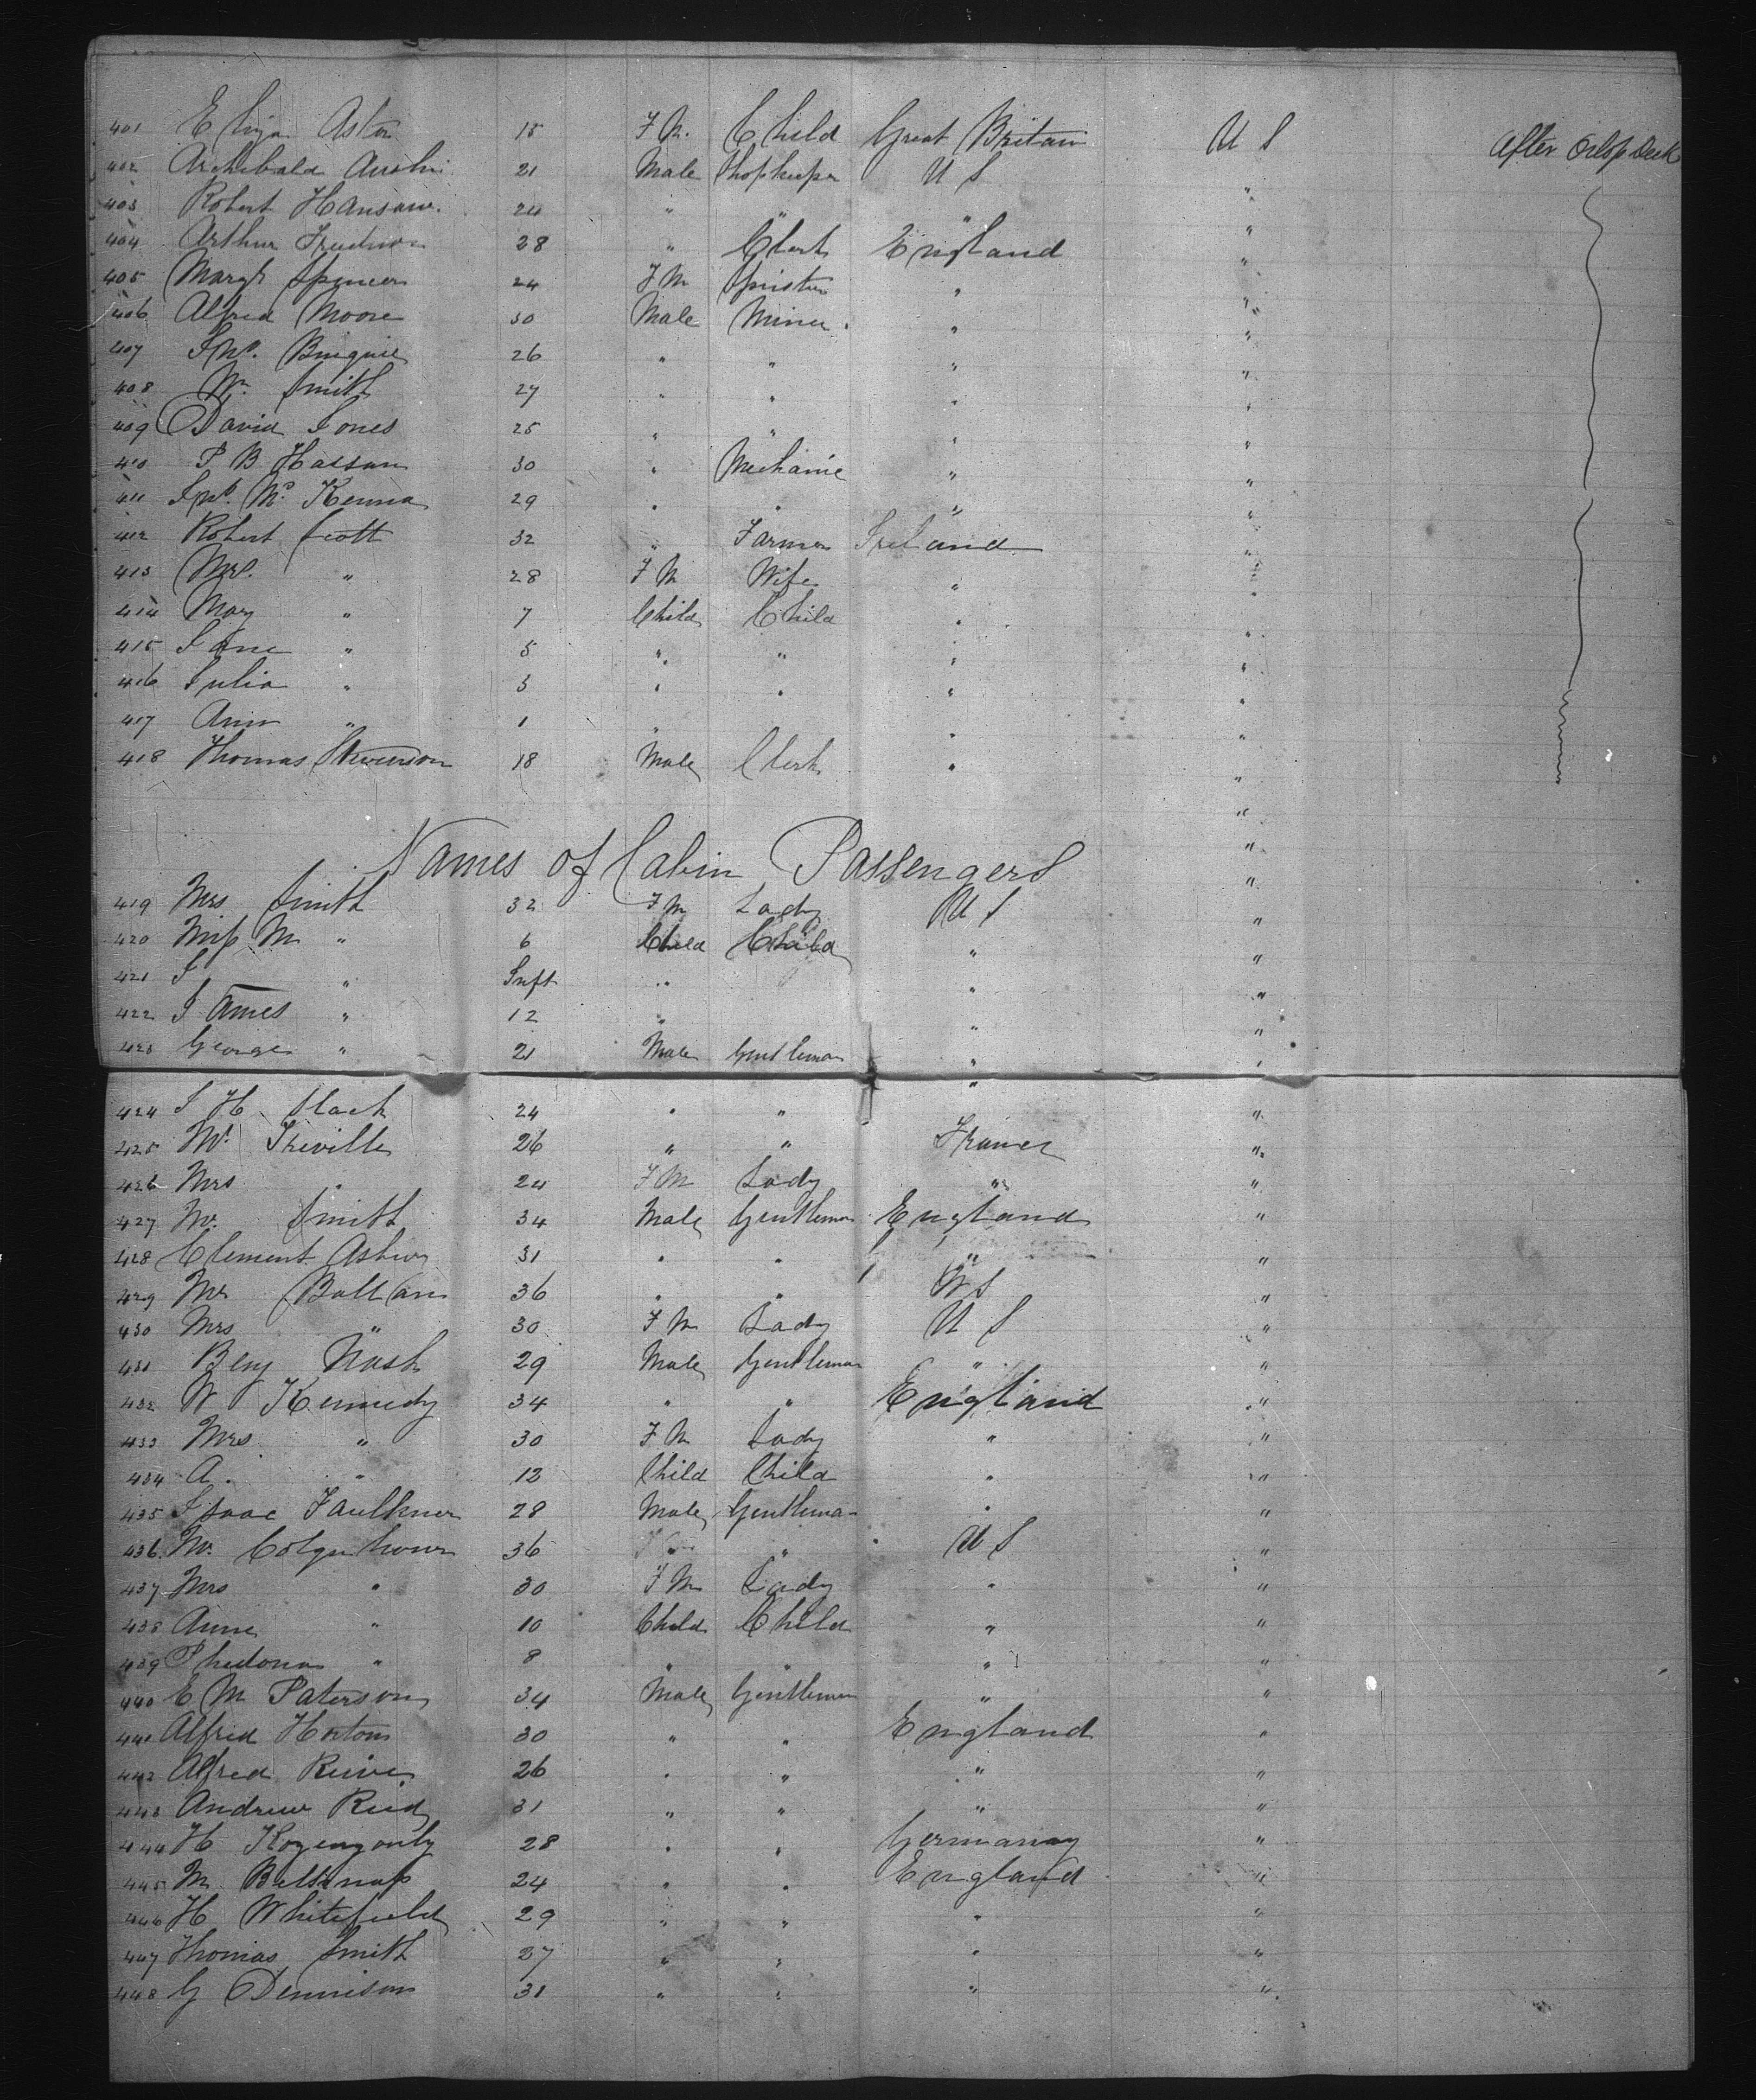 401 Eliza Aston 15 F M. Child Great Britain U S After Orlop Deck
402 Archibald Austin 21 Male Shopkeeper U S "
403 Robert Hansom. 24 " " " "
404 Arthur 28 " Clerk England "
405 Margt Spencer 24 F M Spinster " "
406 Alfred Moore 30 Male Miner. " "
407 Jno. 26 " " " "
408 Wm Smith 27 " " " "
409 David Jones 25 " " " "
410 P B Hassan 30 " Mechanic " "
411 Jno. Mc Kenna 29 " " " "
412 Robert Scott 32 " Farmer Ireland "
413 Mrs. " 28 F M Wife " "
414 Mary " 7 Child Child " "
415 Jane " 5 " " " "
416 Julia " 3 " " " "
417 Ann " 1 " " "
418 Thomas Stevenson 18 Male Clerk " "
Names of Cabin Passengers
419 Mrs Smith 32 F M Lady U S "
420 Miss M " 6 Child Child " "
421 J " Inft " " "
422 James " 12 " " "
423 George " 21 Male Gentleman " "
424 J H Slack 24 " " " "
425 Mr. Treville 26 " " France "
426 Mrs " 24 F M Lady " "
427 Mr. Smith 34 Male Gentleman England "
428 Clement 31 " " " "
429 Mr 36 " " U S "
430 Mrs " 30 F M Lady U S "
431 Benj Nash 29 Male Gentleman " "
432 W Kennedy 34 " " England "
433 Mrs " 30 F M Lady " "
434 A. " 12 Child Child " "
435 Isaac Faulkner 28 Male Gentleman " "
436. Mr. Colquhoun 36 " " U S "
437 Mrs " 30 F M Lady " "
438 Anne " 10 Child Child " "
439 " 8 " " " "
440 E M Paterson 34 Male Gentleman " "
441 Alfred Horton 30 " " England "
442 Alfred 26 " " " "
443 Andrew Reid 31 " " " "
444 H 28 " " Germany "
445 M Belknap 24 " " England "
446 H Whitefield 29 " " " "
447 Thomas Smith 27 " " " "
448 G Dennison 31 " " " "